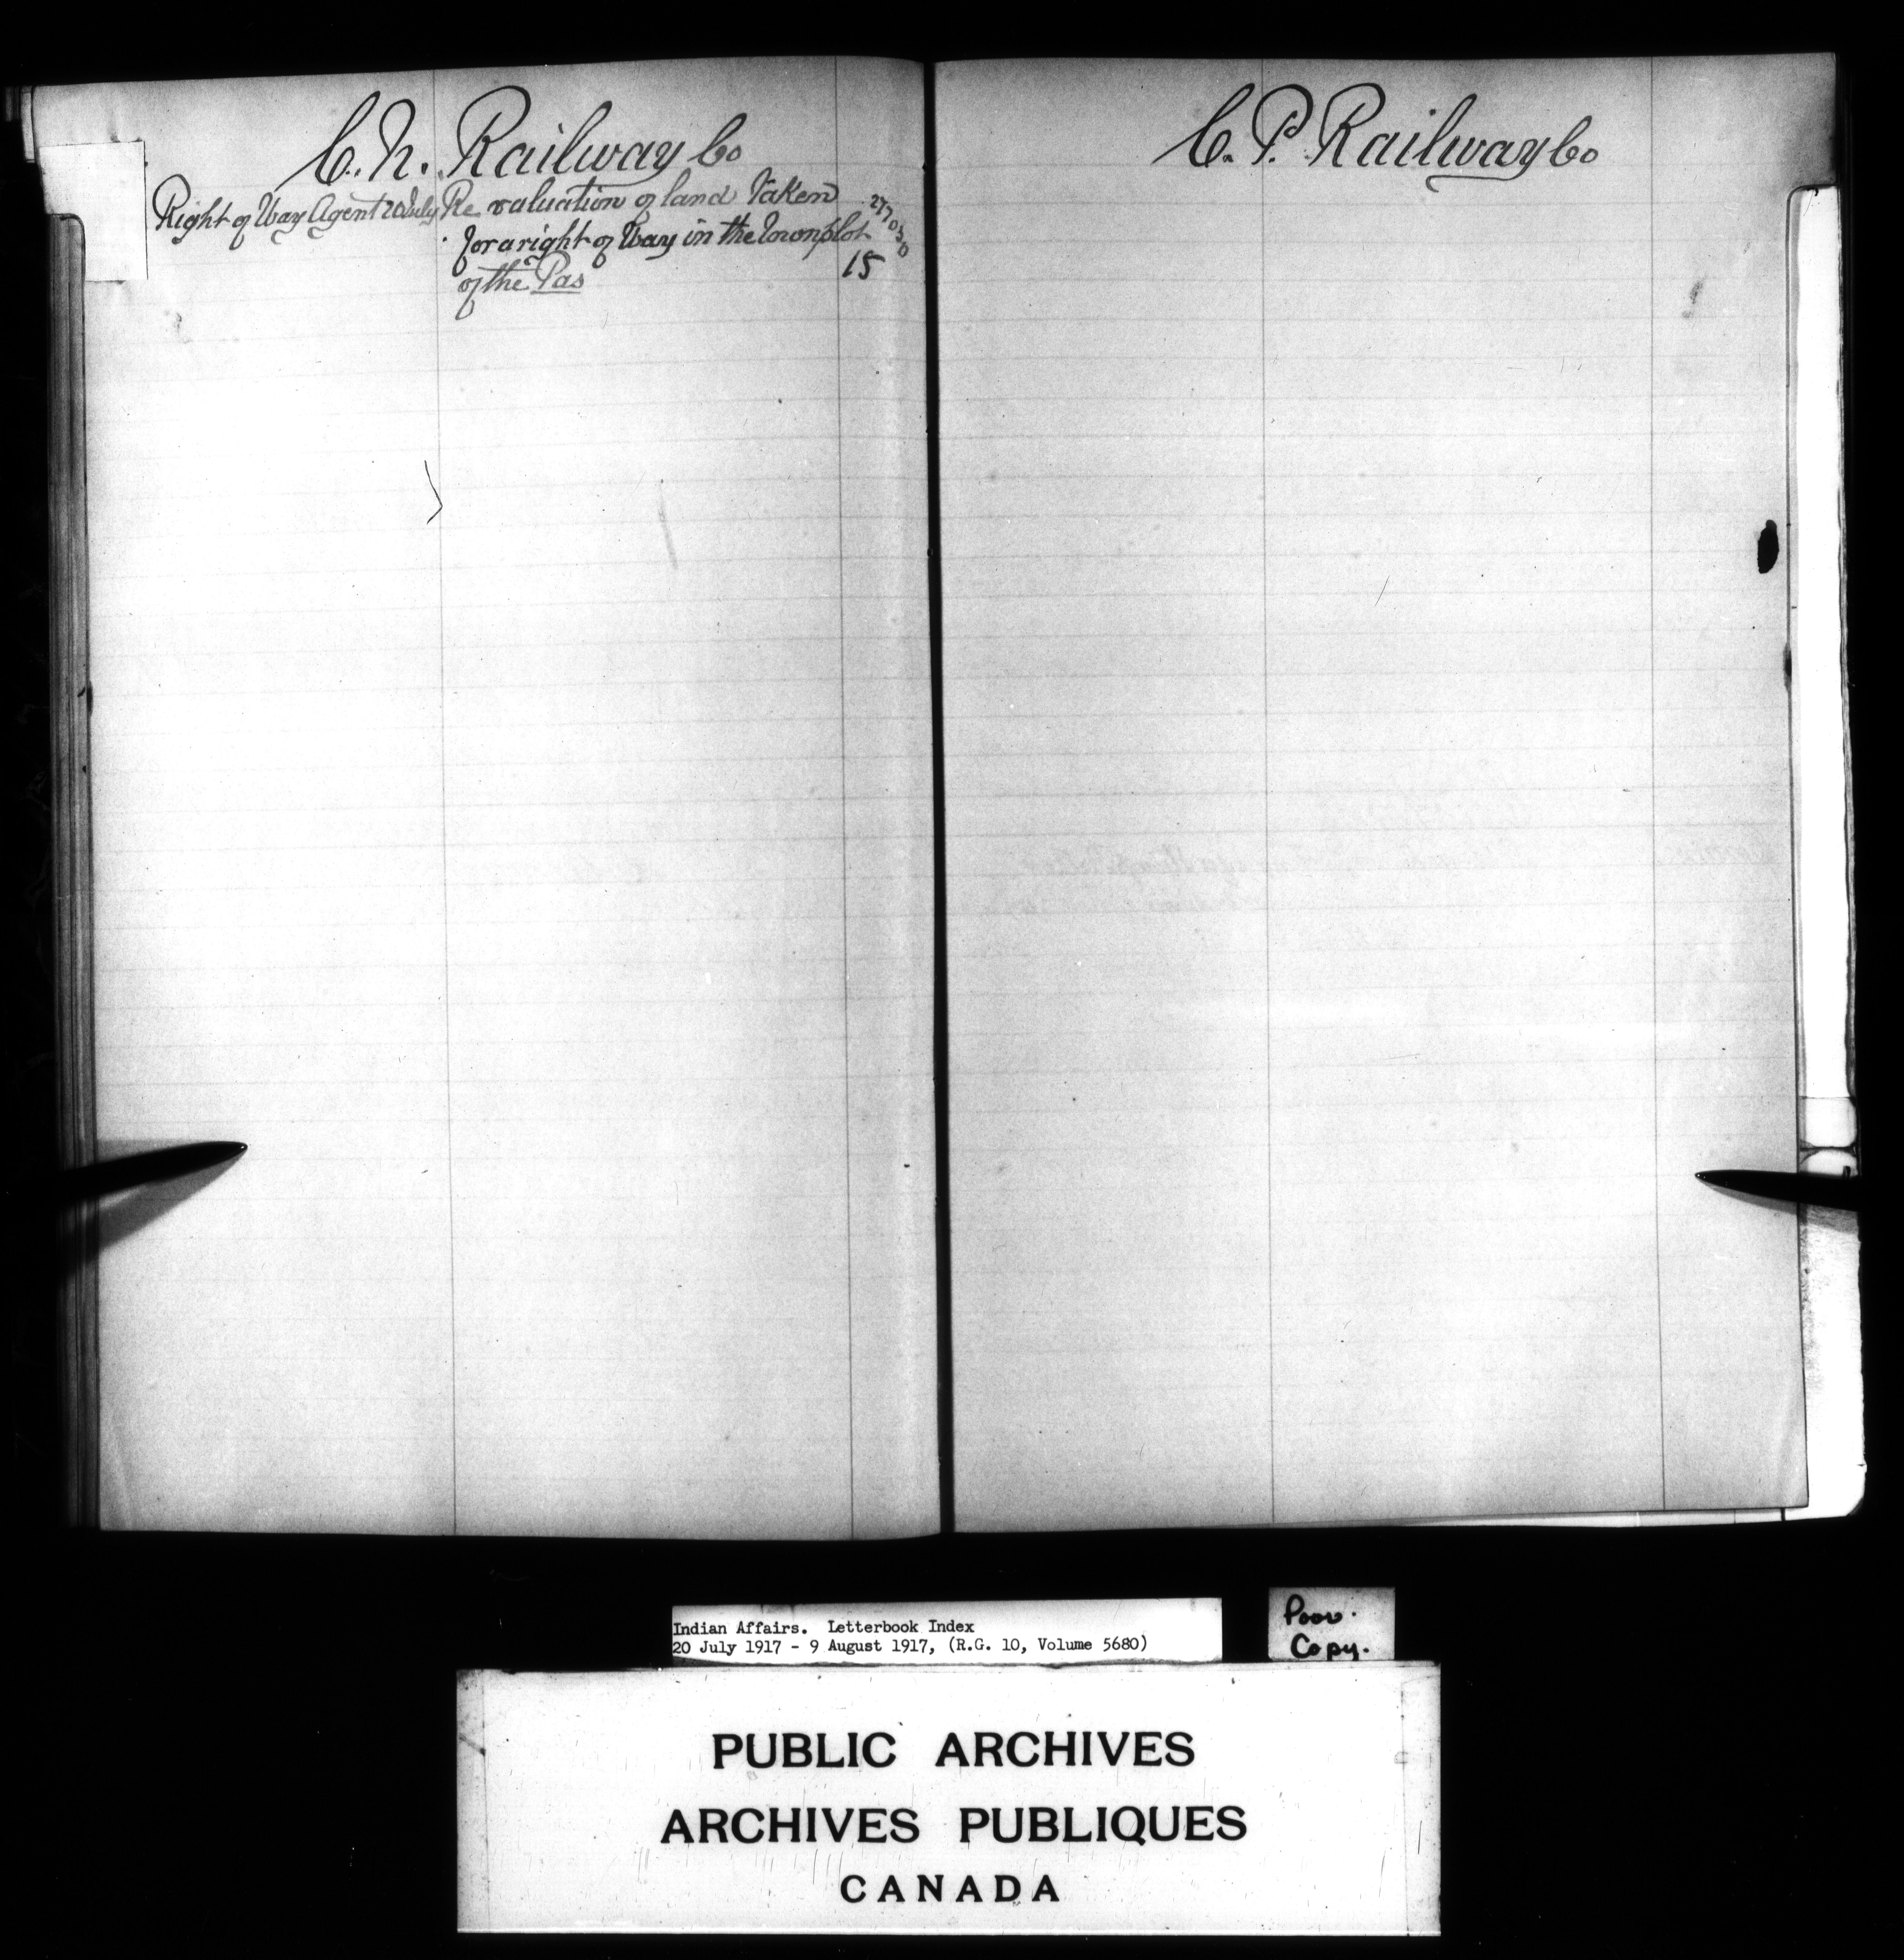 C. N. Railway Co
Right of Way Agent 20 July Re valuation of land Taken 277030
for a right of Way in the Townplot 15
of the Pas
C. P. Railway Co
Indian Affairs. Letterbook Index
20 July 1917 - 9 August 1917, (R.G. 10, Volume 5680)
Poor
Copy.
PUBLIC ARCHIVES
ARCHIVES PUBLIQUES
CANADA